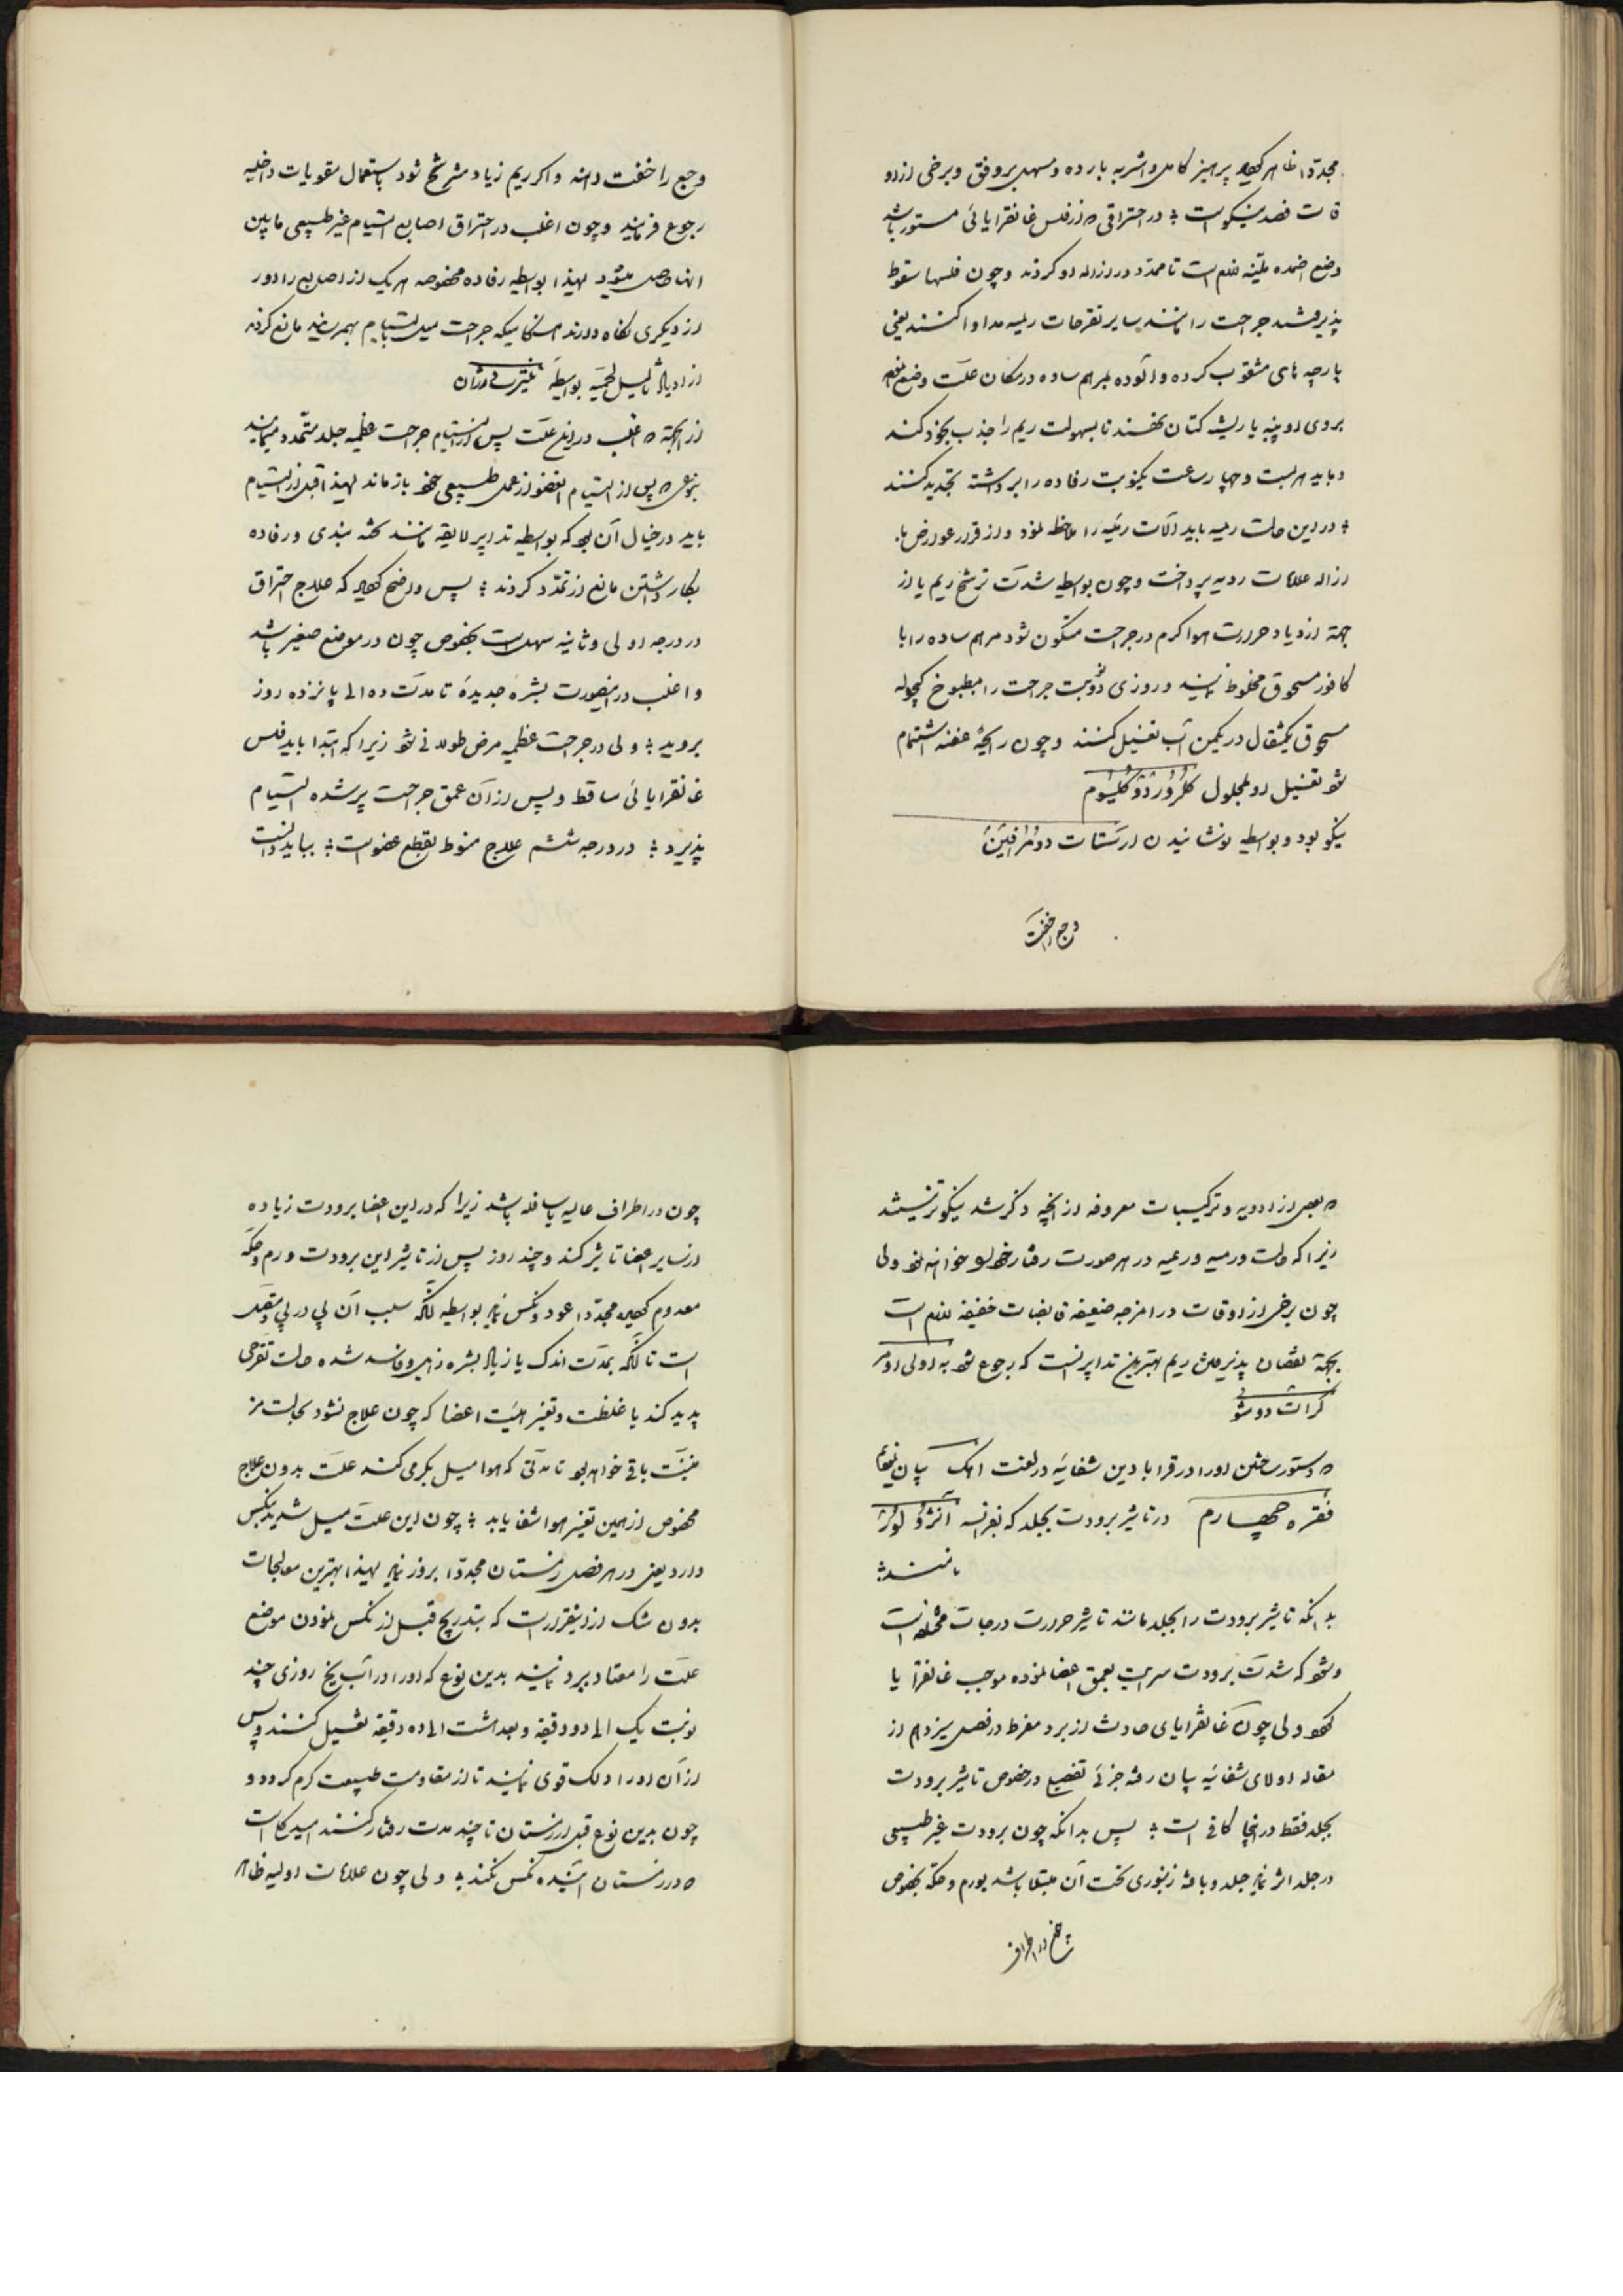 مجددا ظاهر گردد پرهیز کامل و اشربه بارده و مسهل بروفق و برخی از او
قات فصد نیکوست ؛ در احتراقی که از فلس غانقرایائی مستور باشد
وضع اضمده ملینه لازم است تا ممد در ازاله او گردند و چون فلسها سقوط
پذیرفتند جراحت را مانند سایر تقرحات ریمیه مداوا کنند یعنی
پارچه های مثقوب کرده و آلوده بمرهم ساده در مکان علت وضع نموده
بر روی او پنبه یا ریشه کتان نهند تا بسهولت ریم را جذب بخود کند
و باید هر بیست و چهار ساعت یکنوبت رفاده را برداشته تجدید کنند
؛ در این حالت ریمیه باید آلات رئیسه را ملاحظه نمود و از قرار عوارض با
زاله علامات ردیه پرداخت و چون بواسطه شدت ترشح ریم یا از
جهة ازدیاد حرارت هوا کرم در جراحت متکون شود مرهم ساده را با
کافور مسحوق مخلوط نمایند و روزی دو نوبت جراحت را بمطبوخ کچوله
مسحوق یکمثقال در یکمن آب تغسیل کنند و چون رایحه عفنه استشمام
شود تغسیل او بمحلول کلرور دو کلسیوم
نیکو بود و بواسطه نوشانیدن ارستات دو مرافین
وجع را خفت
وجع را خفت دهند و اگر ریم زیاد مترشح شود باستعمال مقویات داخلیه
رجوع فرمایند و چون اغلب در احتراق اصابع التیام غیر طبیعی مابین
انها حاصل میشود لهذا بواسطه رفاده مخصوصه هر یک از اصابع را دور
از دیگری نگاه دارند هنگامیکه جراحت میل بالتیام بهمرساند مانع گردند
از ازدیاد ثالیل لحمیه بواسطه نیترت دارژان
از انجهة که اغلب در این علت پس از التیام جراحت عظیمه جلد متمدد میماند
بنوعی که پس از التیام العضو از عمل طبیعی خود بازماند لهذا قبل از التیام
باید در خیال آن بود که بواسطه تدابیر لایقه مانند تخته بندی و رفاده
بکار داشتن مانع از تمدد گردند ؛ پس واضح گردید که علاج احتراق
در درجه اولی و ثانیه سهل است بخصوص چون در موضع صغیر باشد
و اغلب در اینصورت بشره جدیده تا مدت ده الی پانزده روز
بروید ؛ ولی در جراحت عظیمه مرض طولانی شود زیرا که ابتدا باید فلس
غانقرایائی ساقط و پس از آن عمق جراحت پر شده التیام
پذیرد ؛ در درجه ششم علاج منوط بقطع عضو است ؛ بباید دانست
که بعضی از ادویه و ترکیبات معروفه از آنچه ذکر شد نیکوتر نیستند
زیرا که حالت ورمیه و ریمیه در هر صورت رفتار خود را خواهد نمود ولی
چون برخی از اوقات در امزجه ضعیفه قابضات خفیفه لازم است
بجهة نقصان پذیرفتن ریم بهترین تدابیر آنست که رجوع شود به اولی اومر
کرات دوشو
که دستور ساختن او را در قرابادین شفائیه در لغت اهک بیان نمودیم
فقره چهارم در تاثیر برودت بجلد که بفرانسه آنژلور
نامند ؛
بدانکه تاثیر برودت را بجلد مانند تاثیر حرارت درجات مختلفه است
و شود که شدت برودت سرایت بعمق اعضا نموده موجب غانقرایا
گردد ولی چون غانقرایای حادث از برد مفرط در فصل سیزدهم از
مقاله اولای شفائیه بیان شد جزئی تفصیل در خصوص تاثیر برودت
بجلد فقط در اینجا کافی است ؛ پس بدانکه چون برودت غیر طبیعی
در جلد اثر نماید جلد و بافته زنبوری تحت آن مبتلا باشد بورم و حکه بخصوص
چون در اطراف
چون در اطراف عالیه یا سافله باشد زیرا که در این اعضا برودت زیاده
از سایر اعضا تاثیر کند و چند روز پس از تاثیر این برودت ورم و حکه
معدوم گردیده مجددا عود و نکس نماید بواسطه آنکه سبب آن پی در پی و متصل
است تا آنکه بمدت اندک یا زیاد بشره زایل و فاسد شده حالت تقرحی
پدید کند یا غلظت و تغییر هیئت اعضا که چون علاج نشود بحالت مز
منیت باقی خواهد بود تا مدتی که هوا میل بگرمی کند علت بدون علاج
مخصوص از همین تغییر هوا شفا یابد ؛ چون این علت میل شدید بنکس
دارد یعنی در هر فصل زمستان مجددا بروز نماید لهذا بهترین معالجات
بدون شک از اینقرار است که بتدریج قبل از نکس نمودن موضع
علت را معتاد ببرد نمایند بدین نوع که او را در آب یخ روزی چند
نوبت یک الی دو دقیقه و بعد هشت الی ده دقیقه تغسیل کنند و پس
از آن او را دلک قوی نمایند تا از مقاومت طبیعت گرم گردد و
چون بدین نوع قبل از زمستان تا چند مدت رفتار کنند امید کامل است
که در زمستان آینده نکس نکند ؛ ولی چون علامات اولیه ظاهر